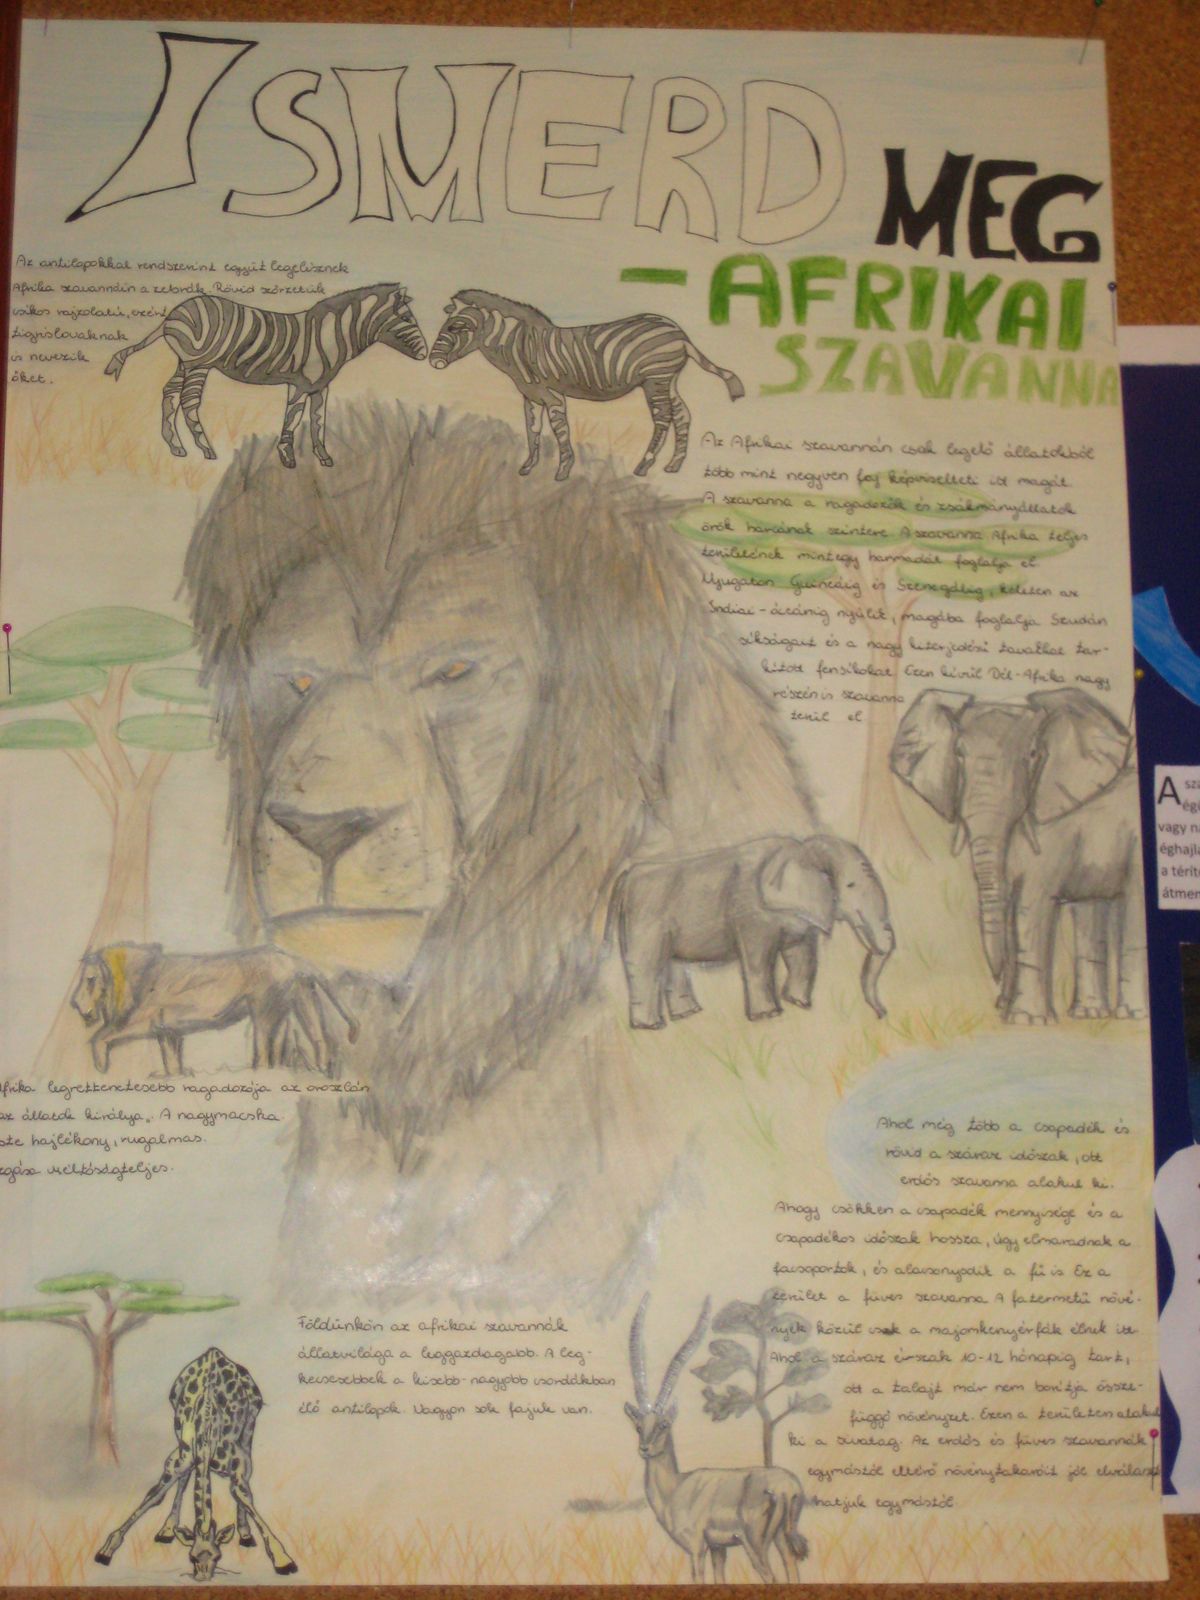 ISMERD
MEG
– AFRIKAI
SZAVANNA
Az antilopokkal rendszerint együtt legelésznek
Afrika szavannáin a zebrák. Rövid szőrzetük
csíkos rajzolatú, ezért
tigrislovaknak
is nevezik
őket.
Az Afrikai szavannán csak legelő állatokból
több mint negyven faj képviselteti itt magát.
A szavanna a ragadozók és zsákmányállatok
örök harcának színtere. A szavanna Afrika teljes
területének mintegy harmadát foglalja el.
Nyugaton Guineáig és Szenegálig, keleten az
Indiai-óceánig nyúlik, magába foglalja Szudán
síkságait és a nagy kiterjedésű tavakkal tar-
kított fensíkokat. Ezen kívül Dél-Afrika nagy
részén is szavanna
terül el
Afrika legrettenetesebb ragadozója az oroszlán
az állatok királya". A nagymacska
hajlékony, rugalmas.
méltóságteljes.
Ahol még több a csapadék és
rövid a száraz időszak, ott
erdős szavanna alakul ki.
Ahogy csökken a csapadék mennyisége és a
csapadékos időszak hossza, úgy elmaradnak a
facsoportok, és alacsonyodik a fű is. Ez a
terület a füves szavanna A fatermetű növé-
nyek közül csak a majomkenyérfák élnek itt
Ahol a száraz évszak 10-12 hónapig tart,
ott a talajt már nem borítja össze-
függő növényzet. Ezen a területen alakul
ki a sivatag. Az erdős és füves szavannák
egymástól eltérő növénytakaróit jól elválaszt
hatjuk egymástól
Földünkön az afrikai szavannák
állatvilága a leggazdagabb. A leg-
kecsesebbek a kisebb-nagyobb csordákban
élő antilopok. Nagyon sok fajuk van.
A
vagy
éghajl
a térít
átmen